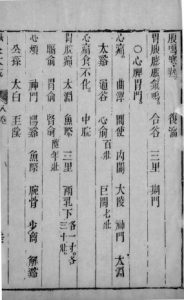 胃腹膨脹氣鳴。　合谷　三里　期門
○心脾胃門
心痛。　曲澤　間使　內關　大陵　神門　太淵
太谿　通谷　心俞百壯　巨闕七壯
心痛食不化。　中脘
胃脘痛。　太淵　魚際　三里　兩乳下各一寸。各三十壯。
膈俞　胃俞　腎俞隨年壯
心煩。　神門　陽谿　魚際　腕骨　少商　解谿
公孫　太白　至陰